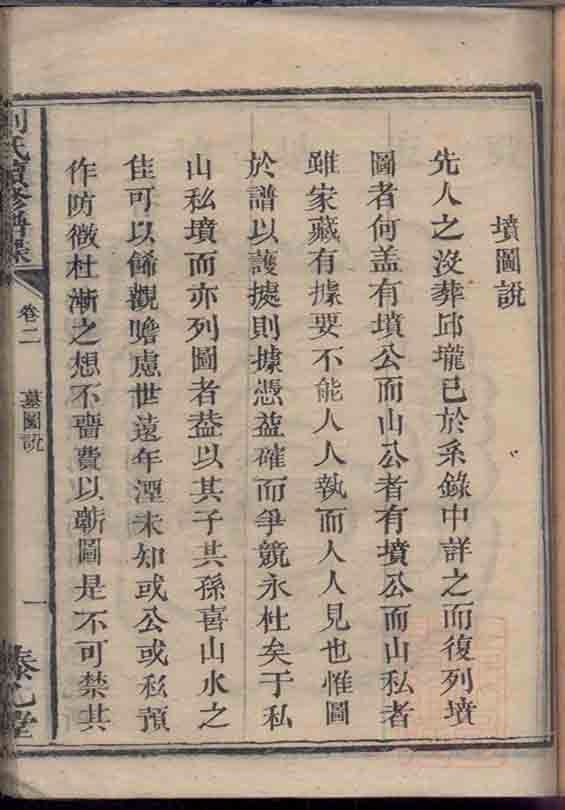 墳圖說
先人之沒葬邱壠已於系錄中詳之而復列墳
圖者何盖有墳公而山公者有墳公而山私者
雖家藏有據要不能人人執而人人見也惟圖
於譜以護援則據憑益確而爭競永杜矣于私
山私墳而亦列圖者益以其子其孫喜山水之
佳可以餙觀瞻慮世遠年湮未知或公或私預
作防微杜漸之想不嗇費以鄿圖是不可禁其
劉氏續修譜
卷二
墓圖說
一
堂